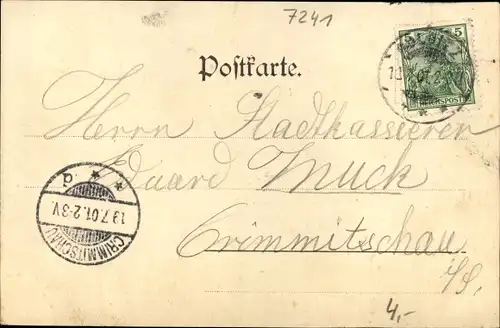 7241
5
REICHSPOST
Postkarte.
Herrn Stadtkassierer
Eduard Muck
Crimmitschau
i/S.
CRIMMITSCHAU
19.7.01.2-3V.
4,-